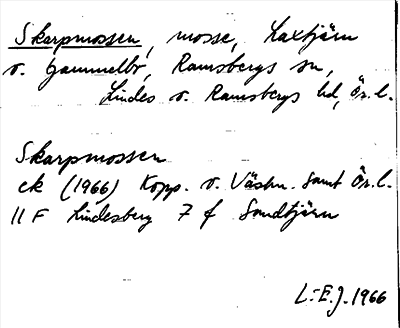 Skarpmossen, mosse, Laxtjärn
o. Gammelbo, Ramsbergs sn,
Lindes o. Ramsbergs hd, Ör. l.
Skarpmossen
ek (1966) Kopp. o. Västm. samt Ör. l.
11 F Lindesberg 7 f Sandtjärn
L-E. J. 1966